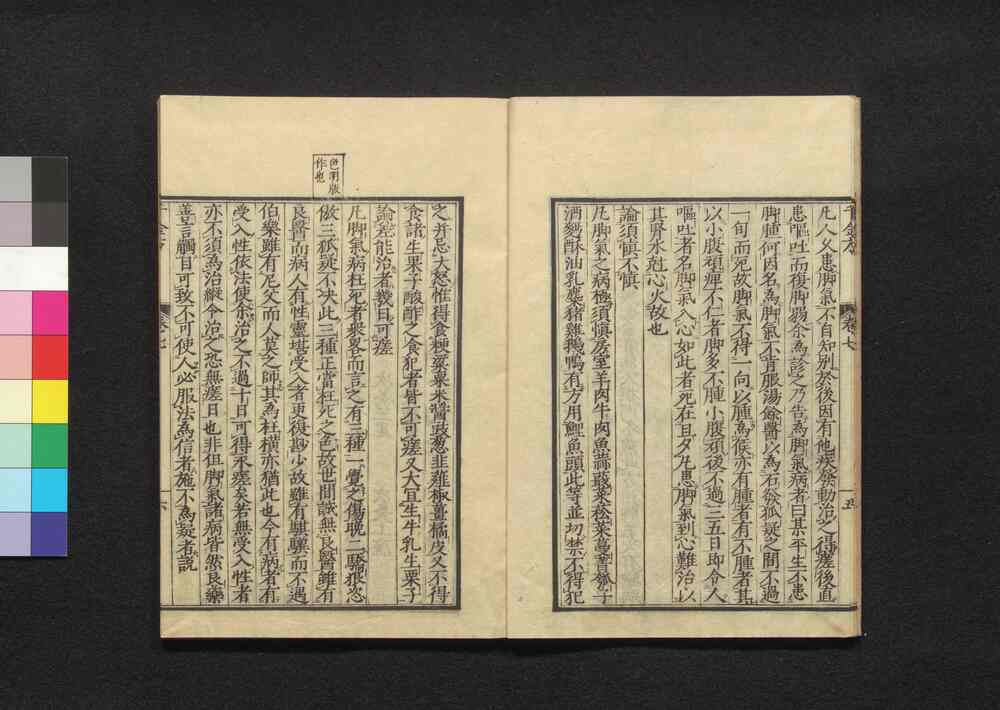 凡人久患脚氣不自知別於後因有他疾發動治之得瘥後直
患嘔吐而復脚弱余為診之乃告為脚氣病者曰某平生不患
脚腫何因名為脚氣不肯服湯餘醫以為石發狐疑之間不過
一旬而死故脚氣不得一向以腫為候亦有腫者有不腫者其
以小腹頑痺不仁者脚多不腫小腹頑後不過三五日即令人
嘔吐者名脚氣入心如此者死在旦夕凡患脚氣到心難治以
其腎水尅心火故也
論須慎不慎
凡脚氣之病極須慎房室羊肉牛肉魚蒜蕺菜菘菜蔓菁瓠子
酒麫酥油乳糜豬雞鵝鴨有方用鯉魚頭此等並切禁不得犯
千金方 卷七 五
之并忌大怒惟得食粳粱粟米醬豉葱韭薤椒薑橘皮又不得
食諸生果子酸酢之食犯者皆不可瘥又大宜生牛乳生栗子
論差能治者幾日可瘥
凡脚氣病枉死者衆畧而言之有三種一覺之傷晚二驕狠恣
傲三狐疑不决此三種正當枉死之色故世間誠無良醫雖有
良醫而病人有性靈堪受入者更復尠少故雖有騏驥而不遇
伯樂雖有尼父而人莫之師其為枉橫亦猶此也今有病者有
受入性依法使余治之不過十日可得永瘥矣若無受入性者
亦不須為治縱令治之恐無瘥日也非但脚氣諸病皆然良藥
善言觸目可致不可使人必服法為信者施不為疑者説
卷七 六
色明版
作也